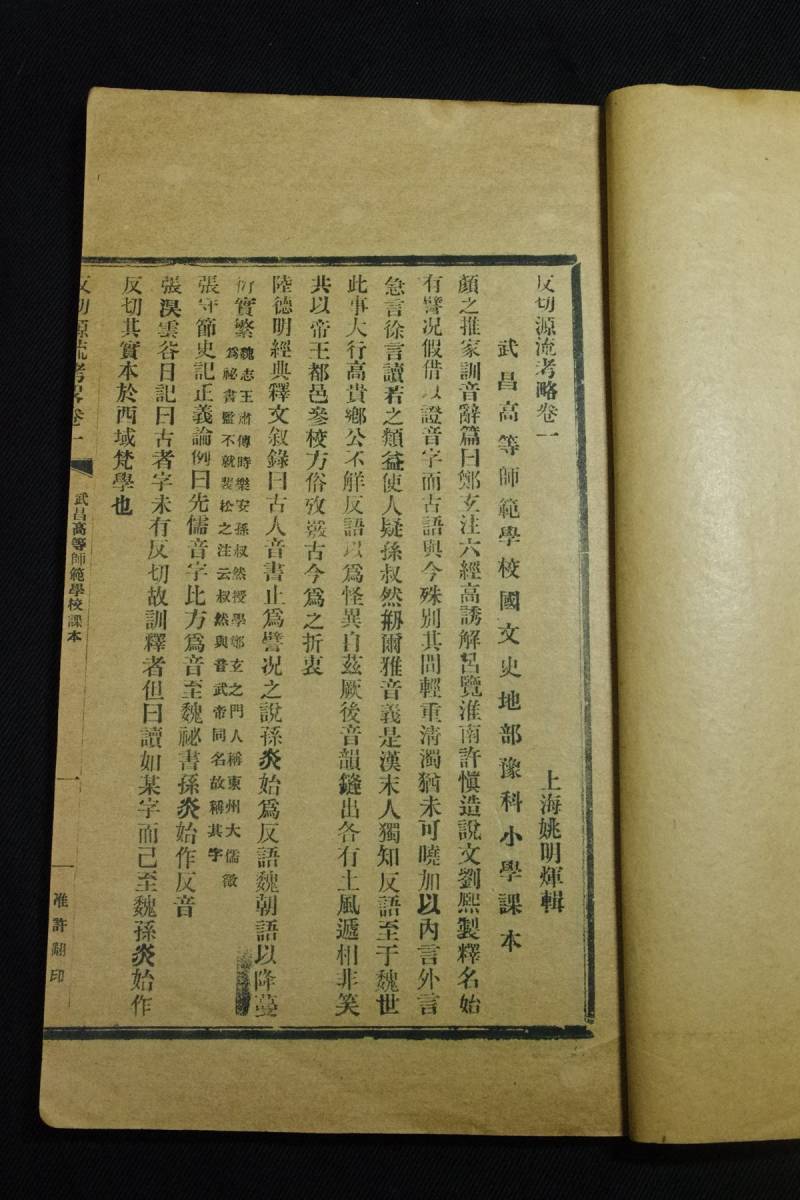 反切源流考略卷一　上海姚明煇輯
武昌高等師範學校國文史地部豫科小學課本
顏之推家訓音辭篇曰鄭玄注六經高誘解呂覽淮南許愼造說文劉熙製釋名始
有譬况假借以證音字而古語與今殊別其間輕重淸濁猶未可曉加以內言外言
急言徐言讀若之類益使人疑孫叔然刱爾雅音義是漢末人獨知反語至于魏世
此事大行高貴鄉公不解反語以爲怪異自茲厥後音韻鏠出各有土風遞相非笑
共以帝王都邑參校方俗攷覈古今爲之折衷
陸德明經典釋文敘錄曰古人音書止爲譬况之說孫炎始爲反語魏朝語以降蔓
衍實繁魏志王肅傳時樂安孫叔然授學鄭玄之門人稱東州大儒徵
爲祕書監不就裴松之注云叔然與晉武帝同名故稱其字
張守節史記正義論例曰先儒音字比方爲音至魏祕書孫炎始作反音
張淏雲谷日記曰古者字未有反切故訓釋者但曰讀如某字而已至魏孫炎始作
反切其實本於西域梵學也
反切源流考略卷一
武昌高等師範學校課本
一
准許翻印